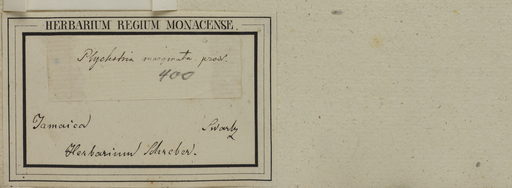 HERBARIUM REGIUM MONACENSE
Psychotria marginata. prod.
400
Jamaica Swartz
Herbarium Schreber.